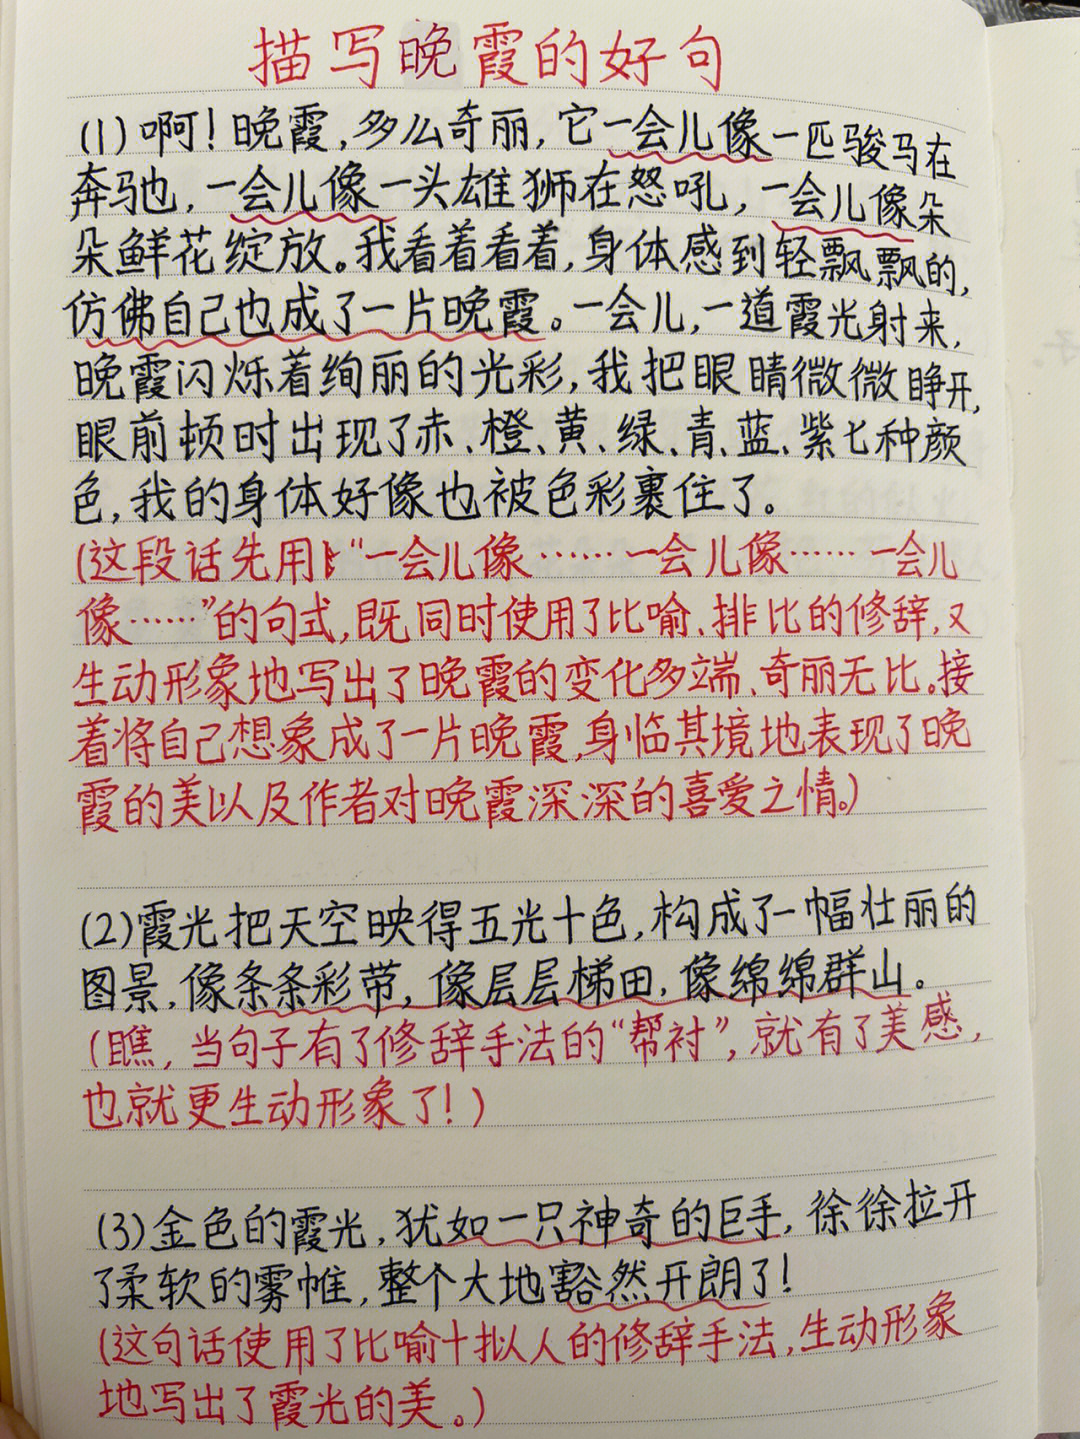 描写晚霞的好句
(1)啊!晚霞,多么奇丽,它一会儿像一匹骏马在
奔马也,一会儿像一头雄狮在怒吼,一会儿像朵
朵鲜花绽放。我看着看着,身体感到轻飘飘的,
仿佛自己也成了一片晚霞。一会儿,一道霞光射来,
晚霞闪烁着绚丽的光彩,我把眼睛微微睁开,
眼前顿时出现了赤、橙、黄、绿、青、蓝、紫七种颜
色,我的身体好像也被色彩裹住了。
(这段话先用“一会儿像……一会儿像……一会儿
像……”的句式,既同时使用了比喻、排比的修辞,又
生动形象地写出了晚霞的变化多端、奇丽无比。接
着将自己想象成了一片晚霞,身临其境地表现了晚
霞的美以及作者对晚霞深深的喜爱之情。)
(2)霞光把天空映得五光十色,构成了一幅壮丽的
图景,像条条彩带,像层层梯田,像绵绵群山。
(瞧,当句子有了修辞手法的“帮衬”,就有了美感,
也就更生动形象了!)
(3)金色的霞光,犹如一只神奇的巨手,徐徐拉开
了柔软的雾帷,整个大地豁然开朗了!
(这句话使用了比喻十拟人的修辞手法,生动形象
地写出了霞光的美。)